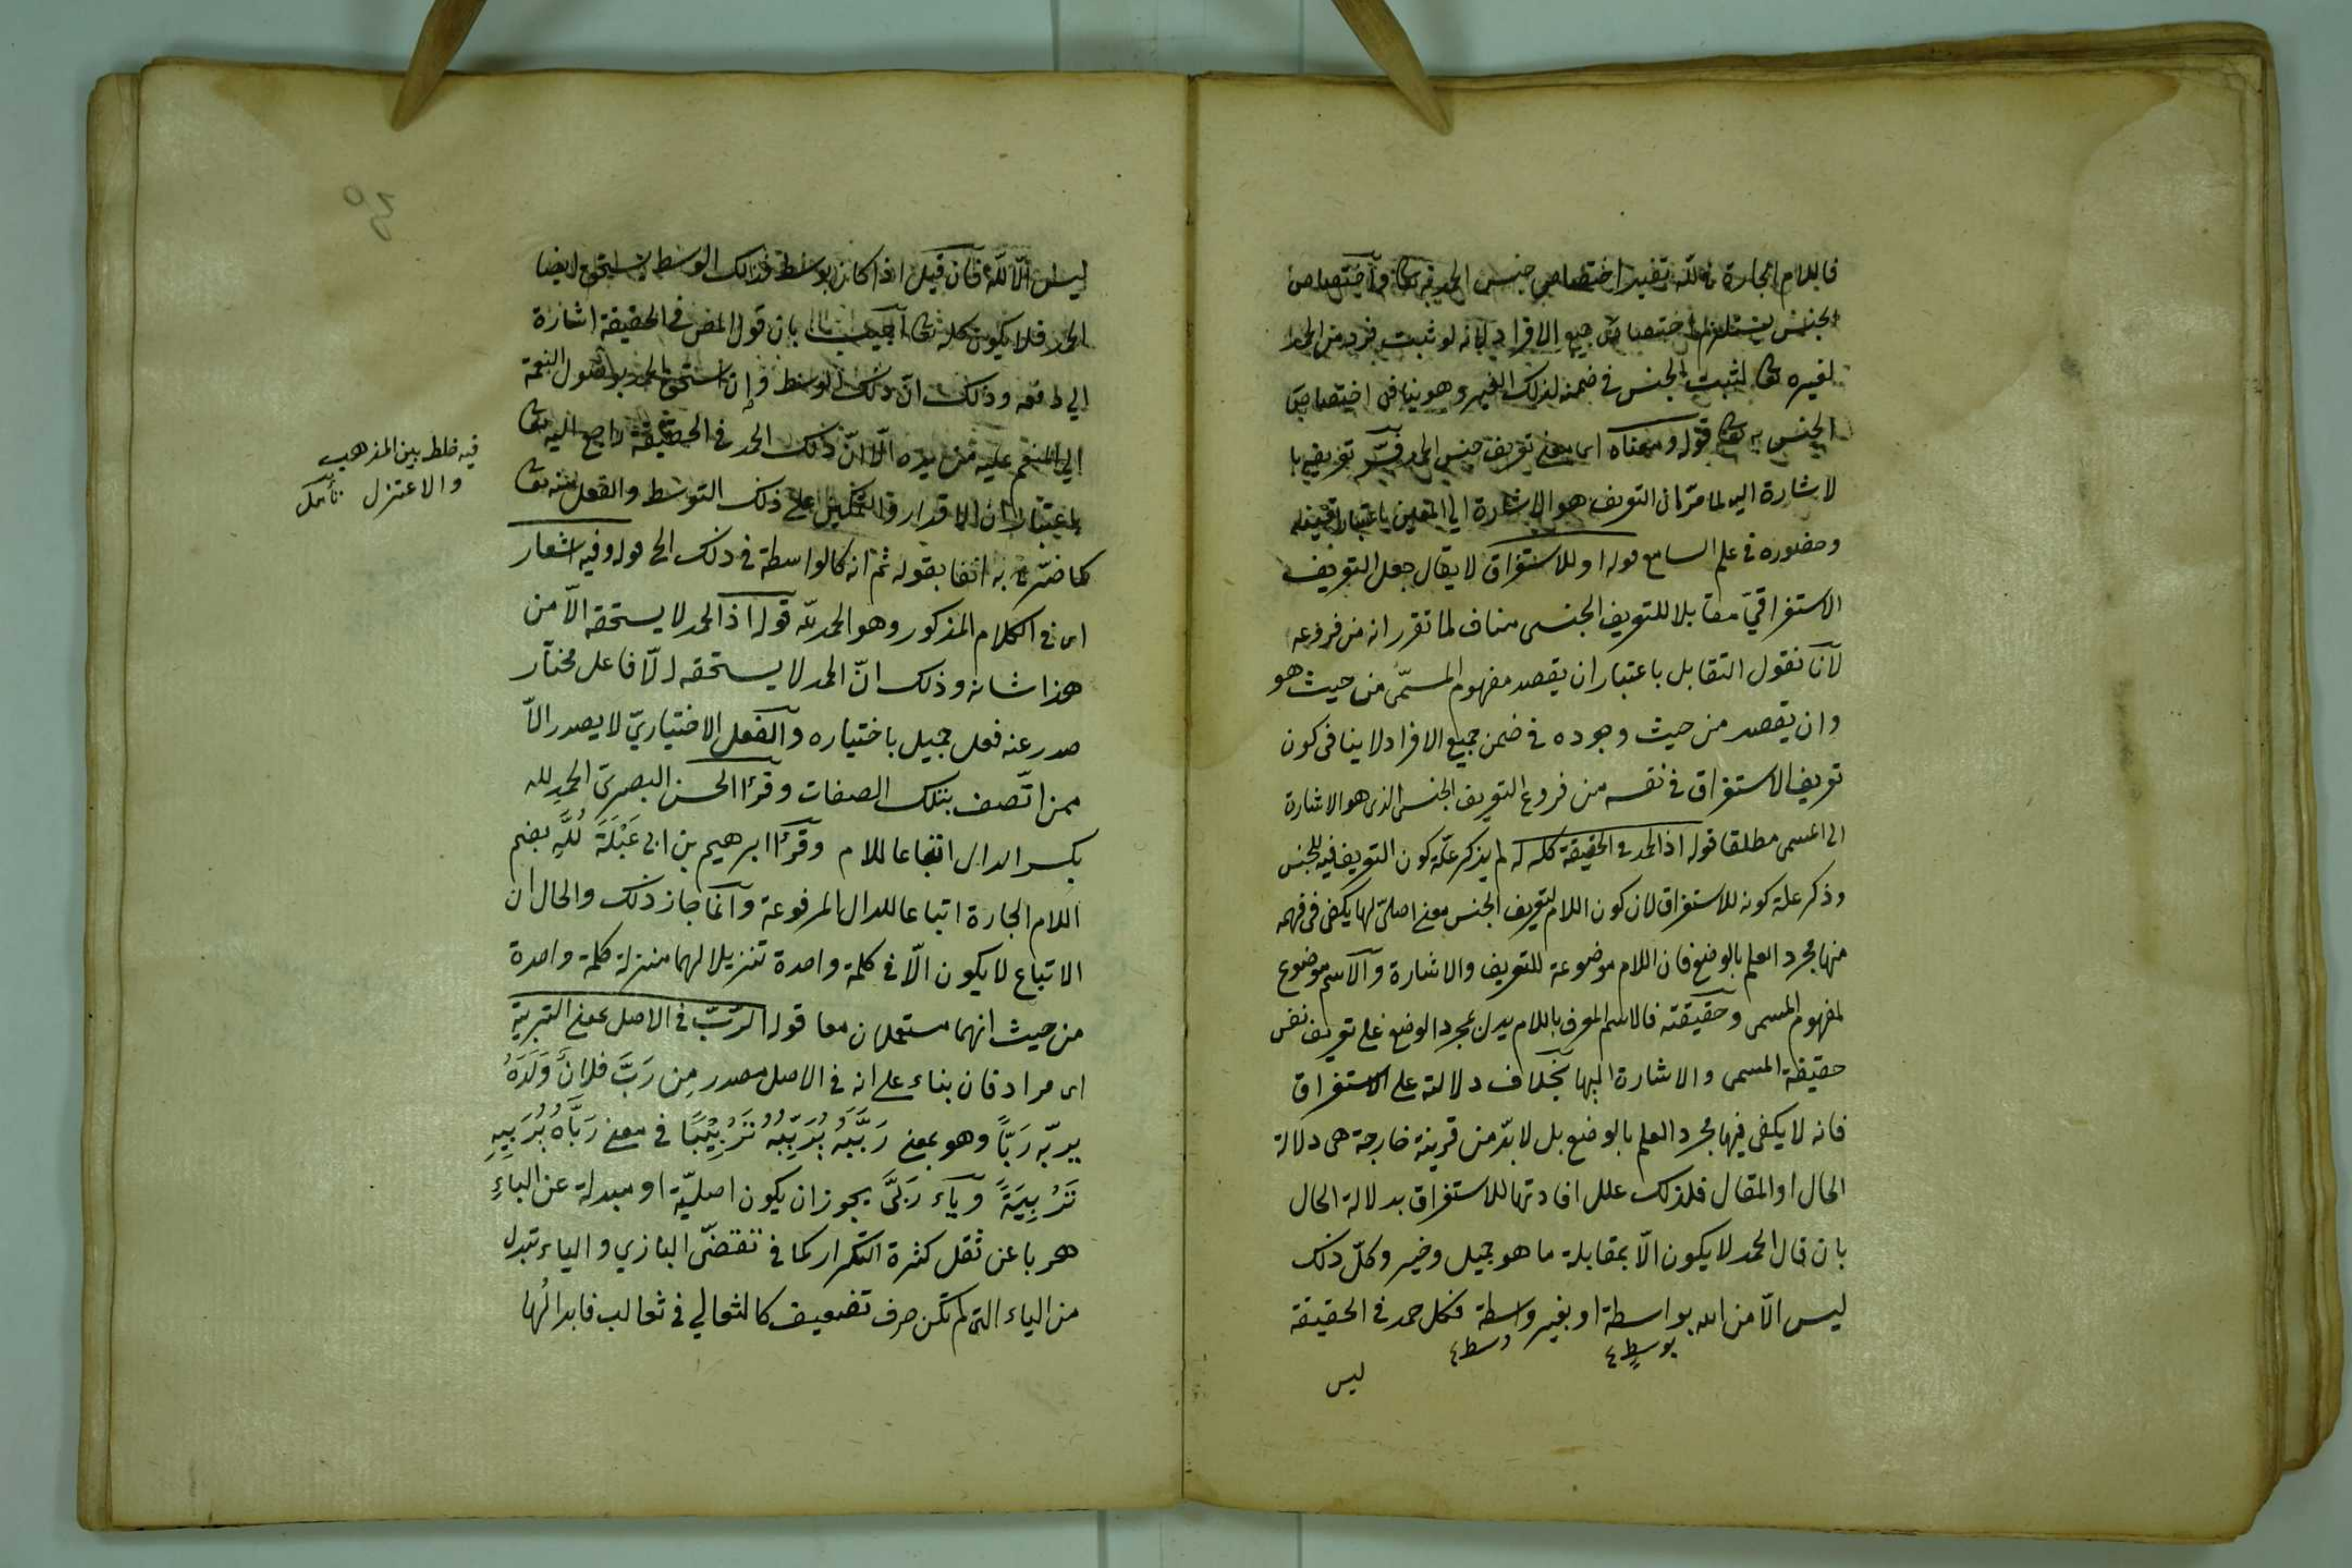 فاللام الجارة في لله تفيد اختصاص جنس الحمد به تعا واختصاص
الجنس يستلزم اختصاص جميع الافراد لانه لو ثبت فرد من الحمد
لغيره تعا لثبت الجنس في ضمنه لذلك الغير وهو ينافى اختصاص
الجنس به تعا قوله ومعناه اى معنى تعريف جنس الحمد فسّر تعريفه با
لاشارة اليه لما مرّ ان التعريف هو الاشارة الى المعين باعتبار تعينه
وحضوره في علم السامع قوله او للاستغراق لا يقال جعل التعريف
الاستغراقيّ مقابلا للتعريف الجنسى مناف لما تقرر انه من فروعه
لانا نقول التقابل باعتبار ان يقصد مفهوم المسمّى من حيث هو
وان يقصد من حيث وجوده في ضمن جميع الافراد لا ينافى كون
تعريف الاستغراق في نفسه من فروع التعريف الجنسى الذى هو الاشارة
الى المسمى مطلقا قوله اذ الحمد في الحقيقة كله له لم يذكر علّة كون التعريف فيه للجنس
وذكر علة كونه للاستغراق لان كون اللام لتعريف الجنس معنى اصلىّ لها يكفى فى فهمه
منها مجرد العلم بالوضع فان اللام موضوعة للتعريف والاشارة والاسم موضوع
لمفهوم المسمى وحقيقته فالاسم المعرف باللام يدل بمجرد الوضع على تعريف نفس
حقيقة المسمى والاشارة اليها بخلاف دلالته على الاستغراق
فانه لا يكفى فيها مجرد العلم بالوضع بل لا بدّ من قرينة خارجة هى دلالة
الحال او المقال فلذلك علل افادتها للاستغراق بدلالة الحال
بان قال الحمد لا يكون الّا بمقابلة ما هو جميل وخير وكلّ ذلك
ليس الّا من الله بواسطة او بغير واسطة فكل حمد في الحقيقة
بوسطٍ ٤ وسط ٤
ليس
ليس الّا لله فان قيل اذا كان بوسط فذلك الوسط يستحق ايضا
الحمد فلا يكون كله له تعا اجيب بان قول المص في الحقيقة اشارة
الى دفعه وذلك انّ ذلك الوسط وإن استحق الحمد بوصول النعمة
الى المنعم عليه من يده الّا انّ ذلك الحمد في الحقيقة راجع اليه تعا
باعتبار ان الاقدار والتمكين على ذلك التوسط والفعل منه تعا
كما صرّح به انفا بقوله ثم انه كالواسطة في ذلك الخ قوله وفيه اشعار
اى في الكلام المذكور وهو الحمد لله قوله اذ الحمد لا يستحقه الّا من
هذا شانه وذلك انّ الحمد لا يستحقه الّا فاعل مختار
صدر عنه فعل جميل باختياره والفعل الاختياريّ لا يصدر الّا
ممن اتّصف بتلك الصفات وقرأ الحسن البصرى الحمدِ لله
بكسر الدال اتباعا للام وقرأ ابرهيم بن ابى عَبْلَةَ لُلّهِ بضم
اللام الجارة اتباعا للدال المرفوعة وانما جاز ذلك والحال ان
الاتباع لا يكون الّا في كلمة واحدة تنزيلا لهما منزلة كلمة واحدة
من حيث انهما مستعملان معا قوله الربّ في الاصل بمعنى التربية
اى مرادفان بناء على انه في الاصل مصدر مِن رَبَّ فلانٌ وَلَدَهُ
يربّه رَبًّا وهو بمعنى رَبَّبَهُ يُرَبِّبُهُ تَرْبِيْبًا في معنى رَبَّاهُ يُرَبِيهِ
تَرْبِيَةً وياء رَبَّى يجوز ان يكون اصليّة او مبدلة عن الباءِ
هربا عن ثقل كثرة التكرار كما في تقضّى البازي والياء تبدل
من الباء التى لم تكن حرف تضعيف كالثعالي في ثعالب فابدالُها
فيه خلط بين المذهب
والاعتزل تأمل